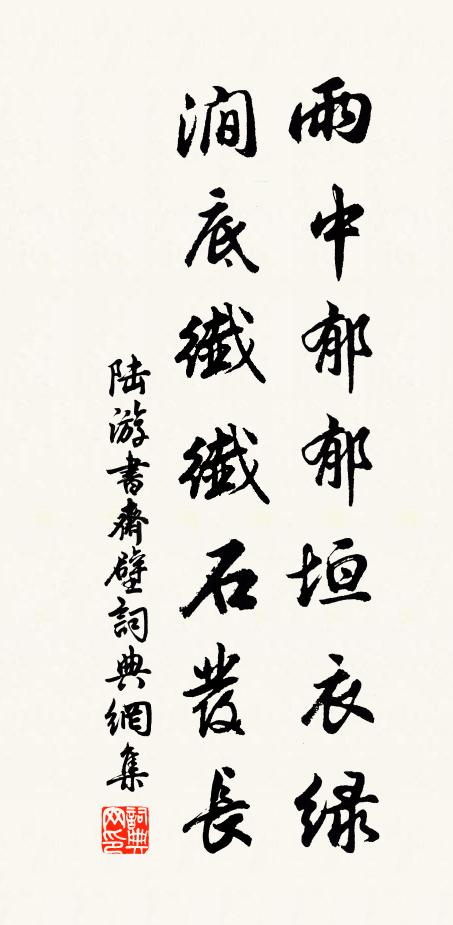 雨中郁郁垣衣绿
澗底纖纖石發長
陆游書齋壁詞典網集
詞典网印